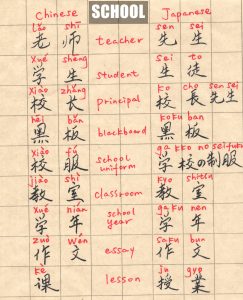 Chinese SCHOOL Japanese
lǎo shī sen sei
老 师 teacher 先 生
xué sheng sei to
学 生 student 生 徒
xiào zhǎng ko cho sen sei
校 长 principal 校 長 先生
hēi bǎn koku ban
黑 板 blackboard 黒 板
xiào fú ga kko no seifuku
校 服 school uniform 学校の制服
jiào shì kyo shitsu
教 室 classroom 教 室
xué nián gaku nen
学 年 school year 学 年
zuò wén saku bun
作 文 essay 作 文
kè ju gyo
课 lesson 授 業